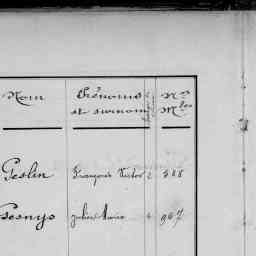 Nom Prénoms et surnom Nos Mles
Geslin François Victor 2 588
Gesnys Julien Marie 4 907